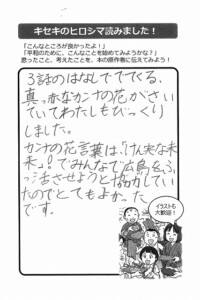 キセキのヒロシマ読みました!
「こんなところが良かったよ!」
「平和のために、こんなことを始めてみようかな?」
思ったこと、考えたことを、本の原作者に伝えてみよう!
3話のはなしででてくる、
真っ赤なカンナの花がさい
ていてわたしもびっくり
しました。
カンナの花言葉は、「けん実な未
来」!でみんなで広島をふ
っ活させようと協力してい
たのでとてもよかった
です。
イラストも
大歓迎!